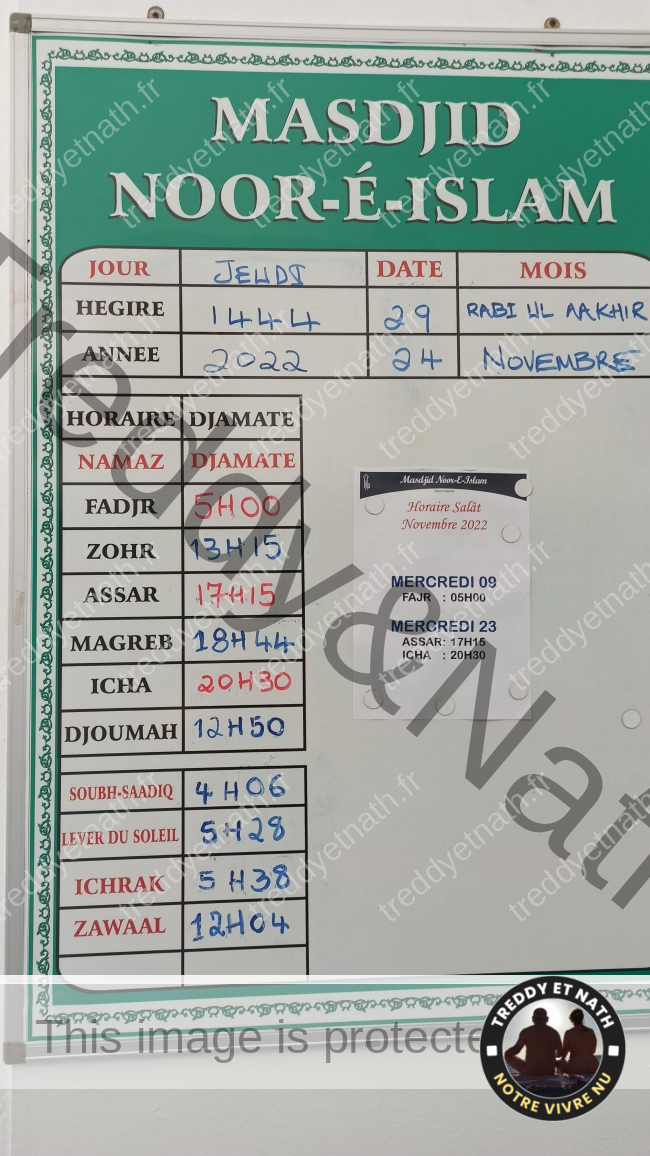 MASDJID
NOOR-É-ISLAM
JOUR JEUDI DATE MOIS
HEGIRE 1444 29 RABI UL AAKHIR
ANNEE 2022 24 NOVEMBRE
HORAIRE DJAMATE
NAMAZ DJAMATE
FADJR 5H00
ZOHR 13H15
ASSAR 17H15
MAGREB 18H44
ICHA 20H30
DJOUMAH 12H50
SOUBH-SAADIQ 4H06
LEVER DU SOLEIL 5H28
ICHRAK 5H38
ZAWAAL 12H04
Masdjid Noor-E-Islam
Horaire Salât
Novembre 2022
MERCREDI 09
FAJR : 05H00
MERCREDI 23
ASSAR: 17H15
ICHA : 20H30
Treddy&Nath
treddyetnath.fr
This image is protecte
TREDDY ET NATH
NOTRE VIVRE NU